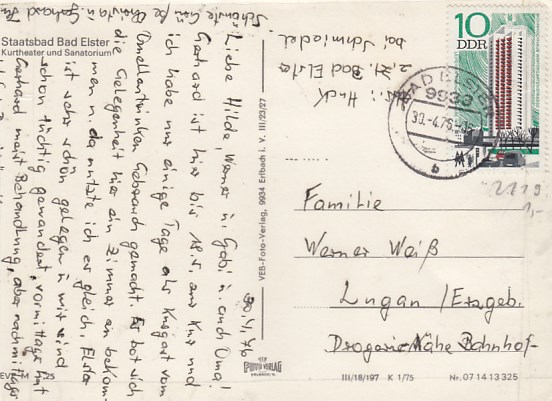 Schönste Grüße
Christa u. Gerhard
Staatsbad Bad Elster
Kurtheater und Sanatorium
30./4. 76
Liebe Hilde, Werner u. Gabi u. auch Oma!
Gerhard ist hier bis 18.5. zur Kur und
ich habe nur einige Tage als Kurgast vom
Quellentrinken Gebrauch gemacht. Es bot sich
die Gelegenheit hier ein Zimmer zu bekom-
men u. da nutzte ich es gleich. Elster
ist sehr schön gelegen u. wir sind
schon tüchtig gewandert, vormittags hat
Gerhard meist Behandlung, aber nachmittags
VEB-Foto-Verlag, 9934 Erlbach i. V. III/23/27
Huck
z. Zt. Bad Elster
bei
10
DDR
BAD ELSTER
9933
30.-4.76
b
2119
1,-
Familie
Werner Weiß
Lugau / Erzgeb.
Drogerie Nähe Bahnhof
FOTO VERLAG
ERLBACH
III/18/197 K 1/75 Nr. 07 14 13 325